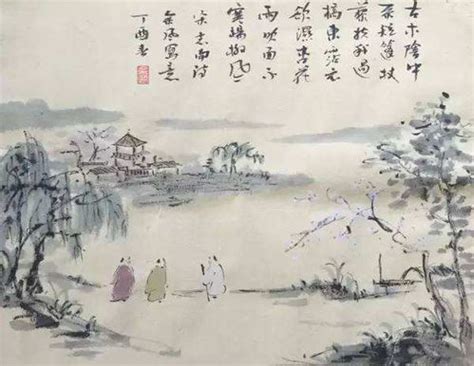 古木陰中
系短篷杖
藜扶我過
橋東沾衣
欲濕杏花
雨吹面不
寒楊柳風
宋志南詩
風寫意
丁酉春